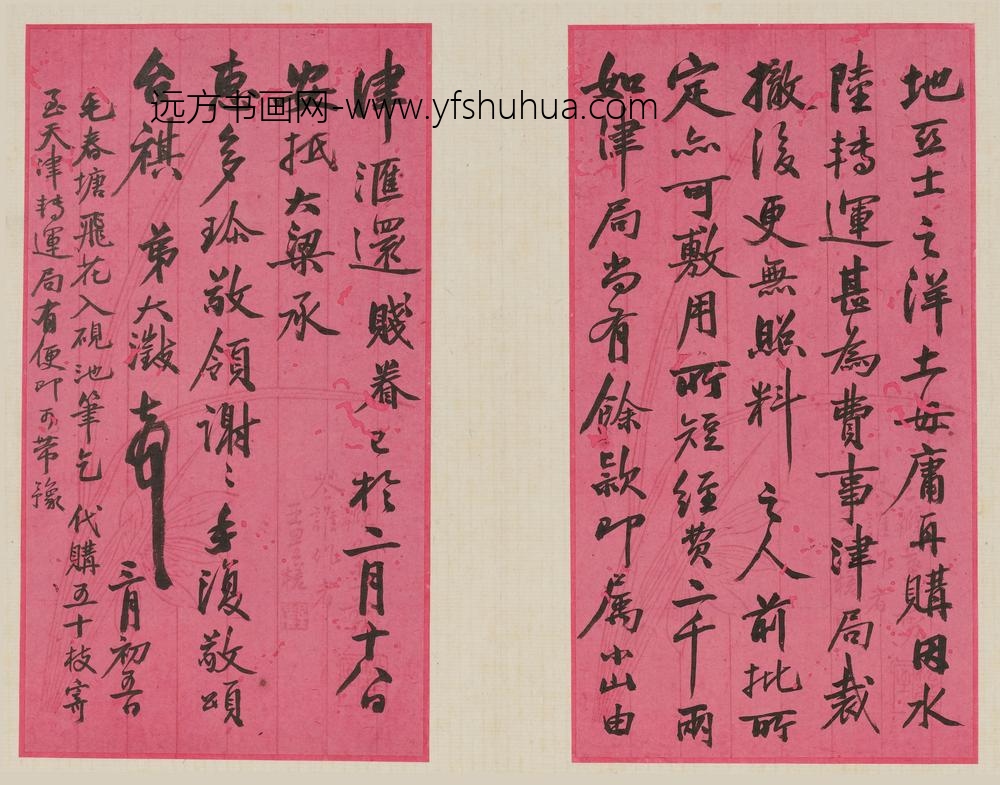 地亞士之洋土毋庸再購因水
陸轉運甚為費事津局裁
撤後更無照料之人前批所
定亦可敷用所短經費二千兩
如津局尚有餘款即屬小山由
津滙還賤眷已於二月十八日
安抵大梁承
惠多珍敬領謝〻手復敬頌
台祺 弟大澂頓首
三月初五日
毛春塘飛花入硯池筆乞代購五十枝寄
至天津轉運局有便即可帶豫
远方书画网-www.yfshuhua.com